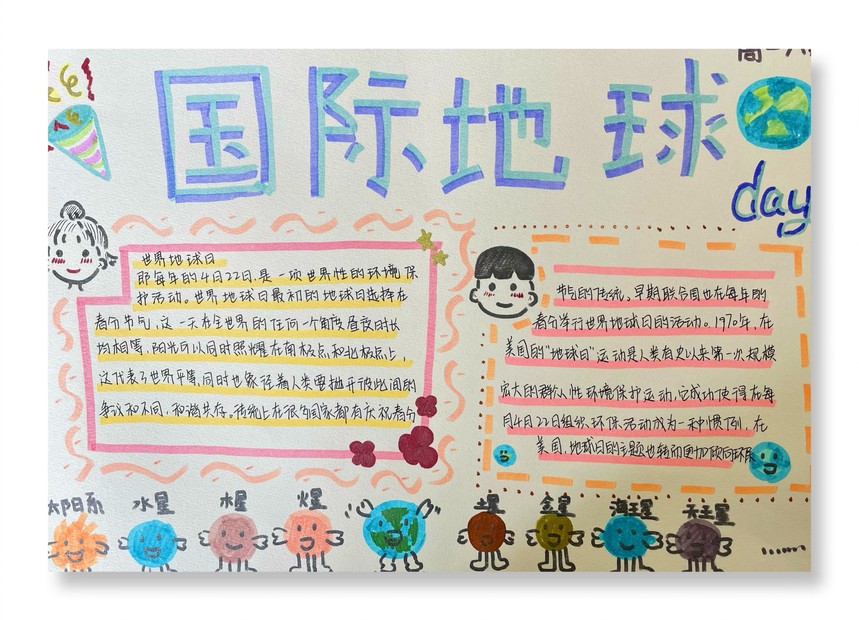 国际地球
day
世界地球日
即每年的4月22日,是一项世界性的环境保
护活动。世界地球日最初的地球日选择在
春分节气,这一天在全世界的任何一个角度昼夜时长
均相等,阳光可以同时照耀在南极点和北极点上,
这代表了世界平等,同时也象征着人类要抛开彼此间的
争议和不同,和谐共存。传统上在很多国家都有庆祝春分
节气的传统,早期联合国也在每年的
春分举行世界地球日的活动。1970年,在
美国的“地球日”运动是人类有史以来第一次规模
宏大的群众性环境保护运动,它成功使得在每
年4月22日组织环保活动成为一种惯例,在
美国,地球日的主题也转动更加倾向环保
太阳系 水星 木星 火星 土星 金星 海王星 天王星